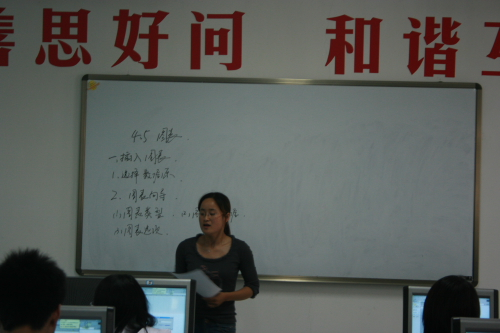 善思好问 和谐互
4.5 图表
一.插入图表
1.选择数据源
2. 图表向导
(1)图表类型
(3)图表选项